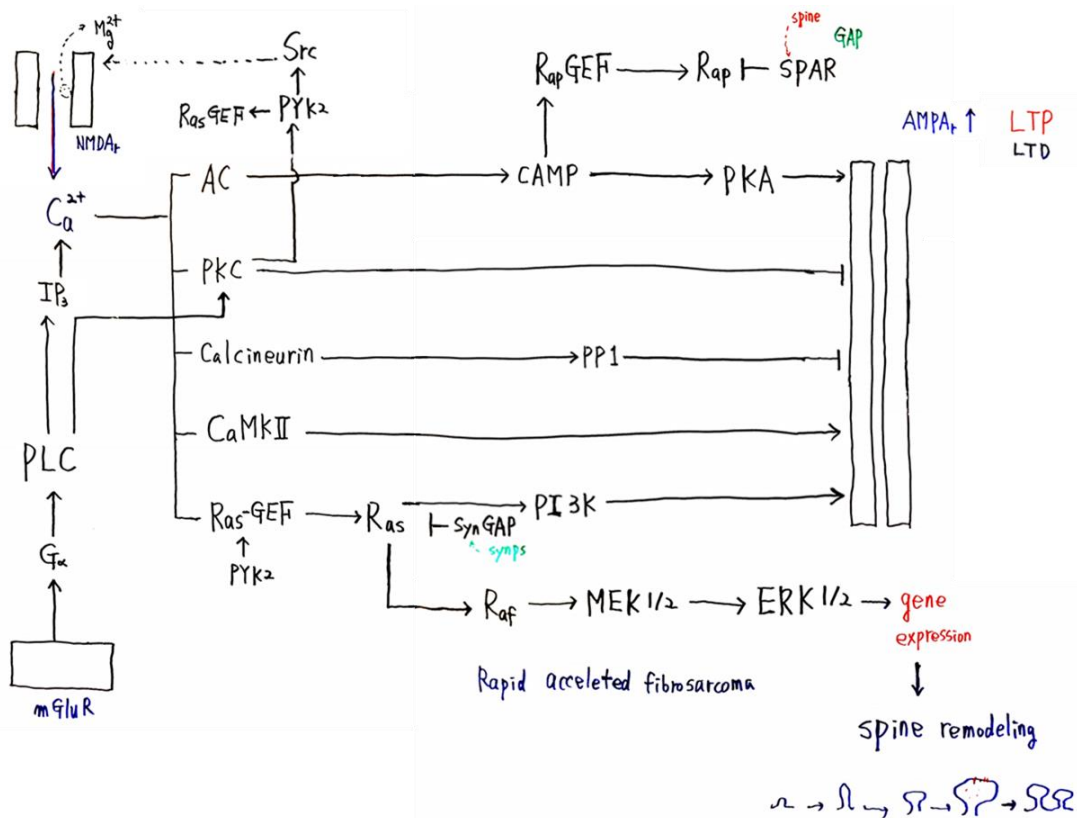 Mg2+
Src
RasGEF ← PYK2
NMDAr
spine
GAP
RapGEF → Rap ⊢ SPAR
AMPAr ↑ LTP
LTD
AC → CAMP → PKA
Ca2+
PKC
IP3
Calcineurin → PP1
CaMKII
PLC
Ras-GEF → Ras → PI3K
SynGAP
synps
PYK2
Gα
Raf → MEK1/2 → ERK1/2 → gene
expression
Rapid acceleted fibrosarcoma
mGluR
spine remodeling